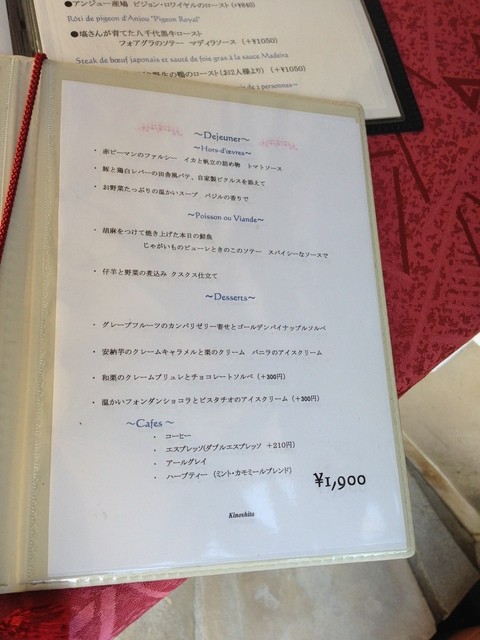 ●アンジュー産鳩 ピジョン・ロワイヤルのロースト(+¥840)
Rôti de pigeon d'Anjou "Pigeon Royal"
●塙さんが育てた八千代黒牛ロースト
フォアグラのソテー マディラソース (+¥1050)
Steak de bœuf japonais et sauté de foie gras à la sauce Madeira
鴨のロースト(お2人様より) (+¥1050)
de 2 personnes~
~Dejeuner~
~Hors-d'œvres~
・ 赤ピーマンのファルシー イカと帆立の詰め物 トマトソース
・ 豚と鶏白レバーの田舎風パテ、自家製ピクルスを添えて
・ お野菜たっぷりの温かいスープ バジルの香りで
~Poisson ou Viande~
・ 胡麻をつけて焼き上げた本日の鮮魚
じゃがいものピューレときのこのソテー スパイシーなソースで
・ 仔羊と野菜の煮込み クスクス仕立て
~Desserts~
・ グレープフルーツのカンパリゼリー寄せとゴールデンパイナップルソルベ
・ 安納芋のクレームキャラメルと栗のクリーム バニラのアイスクリーム
・ 和栗のクレームブリュレとチョコレートソルベ (+300円)
・ 温かいフォンダンショコラとピスタチオのアイスクリーム (+300円)
~Cafes~
・ コーヒー
・ エスプレッソ(ダブルエスプレッソ +210円)
・ アールグレイ
・ ハーブティー (ミント・カモミールブレンド)
¥1,900
Kinoshita